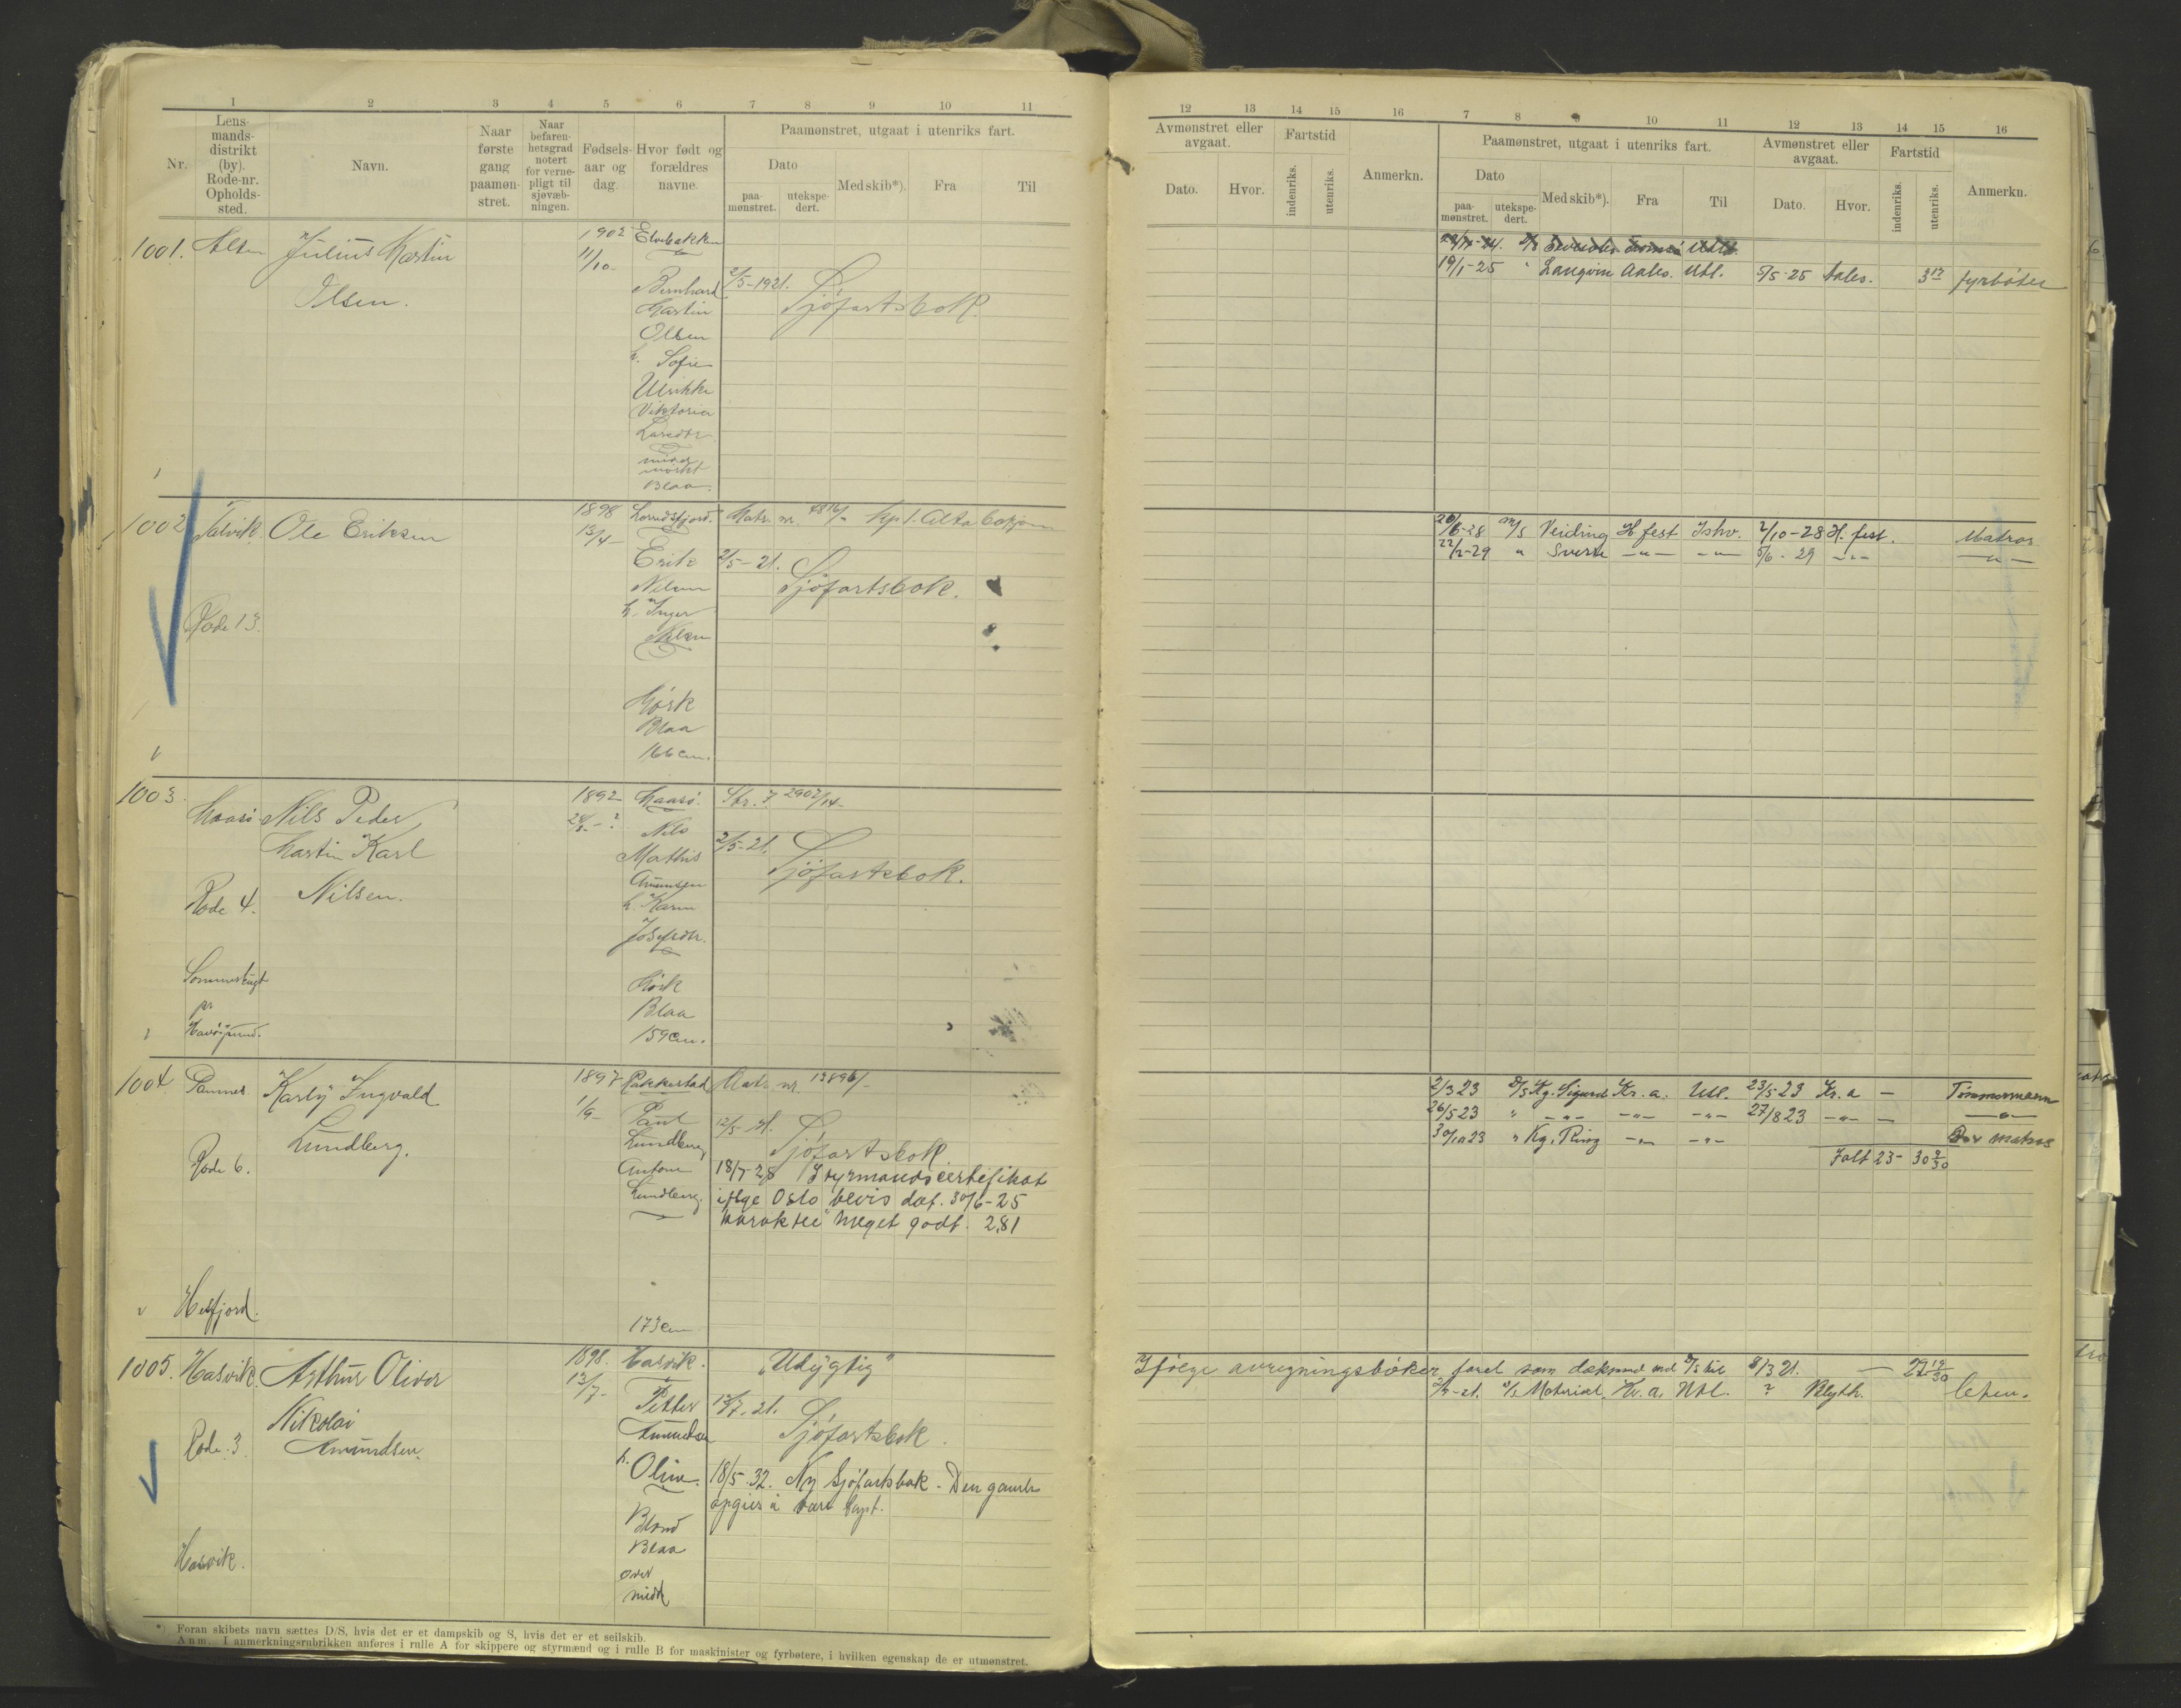 1 2 3 4 5 6 7 8 9 10 11
Nr.
Lens-
mands-
distrikt
(by).
Rode-nr.
Opholds-
sted.
Navn.
Naar
første
gang
paamøn-
stret.
Naar
befaren-
hetsgrad
notert
for verne-
pligt til
sjøvæb-
ningen.
Fødsels-
aar og
dag.
Hvor født og
forældres
navne.
Paamønstret, utgaat i utenriks fart.
Dato
paa-
mønstret.
utekspe-
dert.
Med skib*).
Fra
Til
1001.
Julius Martin
Olsen.
1902
11/10-
Elvebakken
Bernhard
Martin
Olsen
h. Sofie
Ulrikke
Viktoria
Larsdtr
mørk
Blaa.
2/5-1921.
Sjöfartsbok.
1002
Talvik.
Ole Eriksen
Rode 13.
1898
13/4-
Erik
Nilsen
h. Inger
Nilsen
Mørk
Blaa
166 cm.
Matr. nr.
2/5-21.
Sjöfartsbok.
1003.
Maasö
Nils Peder
Martin Karl
Nilsen.
Rode 4.
Sommerbugt
pr
Havöysund.
1892
Maasö.
Nils
Mathis
Amundsen
h. Karen
Josefsdtr.
Mörk
Blaa
159 cm.
2902/14-
2/5-21.
Sjöfartsbok.
1004
Karly Ingvald
Lundberg.
Rode 6.
1897
1/9-
Paul
Lundberg
Antone
Lundberg.
173 cm
Matr. nr.
12/5-21.
Sjöfartsbok
18/7-28 Styrmandscertifikat
ifölge Oslo bevis dat. 30/6-25
karakter "Meget godt. 2,81
1005.
Hasvik.
Arthur Oliver
Nikolai
Amundsen.
Rode 3.
Hasvik.
1898.
13/7-
Hasvik.
Petter
Amundsen
h. Oline.
Blond
Blaa
over
midd
"Udygtig"
12/7-21.
Sjöfartsbok.
18/5-32. Ny Sjöfartsbok - Den gamle
opgies å være bapt.
*) Foran skibets navn sættes D/S, hvis det er et dampskib og S, hvis det er et seilskib.
Anm. I anmerkningsrubrikken anføres i rulle A for skippere og styrmænd og i rulle B for maskinister og fyrbøtere, i hvilken egenskap de er utmønstret.
12 13 14 15 16 7 8 9 10 11 12 13 14 15 16
Avmønstret eller
avgaat.
Dato.
Hvor.
Fartstid
indenriks.
utenriks.
Anmerkn.
Paamønstret, utgaat i utenriks fart.
Dato
paa-
mønstret.
utekspe-
dert.
Med skib*).
Fra
Til
Avmønstret eller
avgaat.
Dato.
Hvor.
Fartstid
indenriks.
utenriks.
Anmerkn.
19/1-25 " Langvin Aales. Utl. 5/5-25 Aales. 3 17 fyrböter
20/6-28 M/S Veiding H fest Ishv. 2/10-28 H. fest. Matros
22/2-29 " Sverre -"- -"- 5/6-29 -"- -"-
2/3 23 D/S Kg. Sigurd Kr.a. Utl. 23/5 23 Kr.a - Tömmermann
26/5 23 " -"- -"- -"- 27/8 23 -"- - -"-
30/10 23 " Kg. Ring -"- -"- matros
Ialt 23- 30 2/30
Ifölge avregningsböker faret som dæksmd med D/S til 8/3 21. - 27 19/30
D/S Material Kr.a. Utl. ? Blyth.